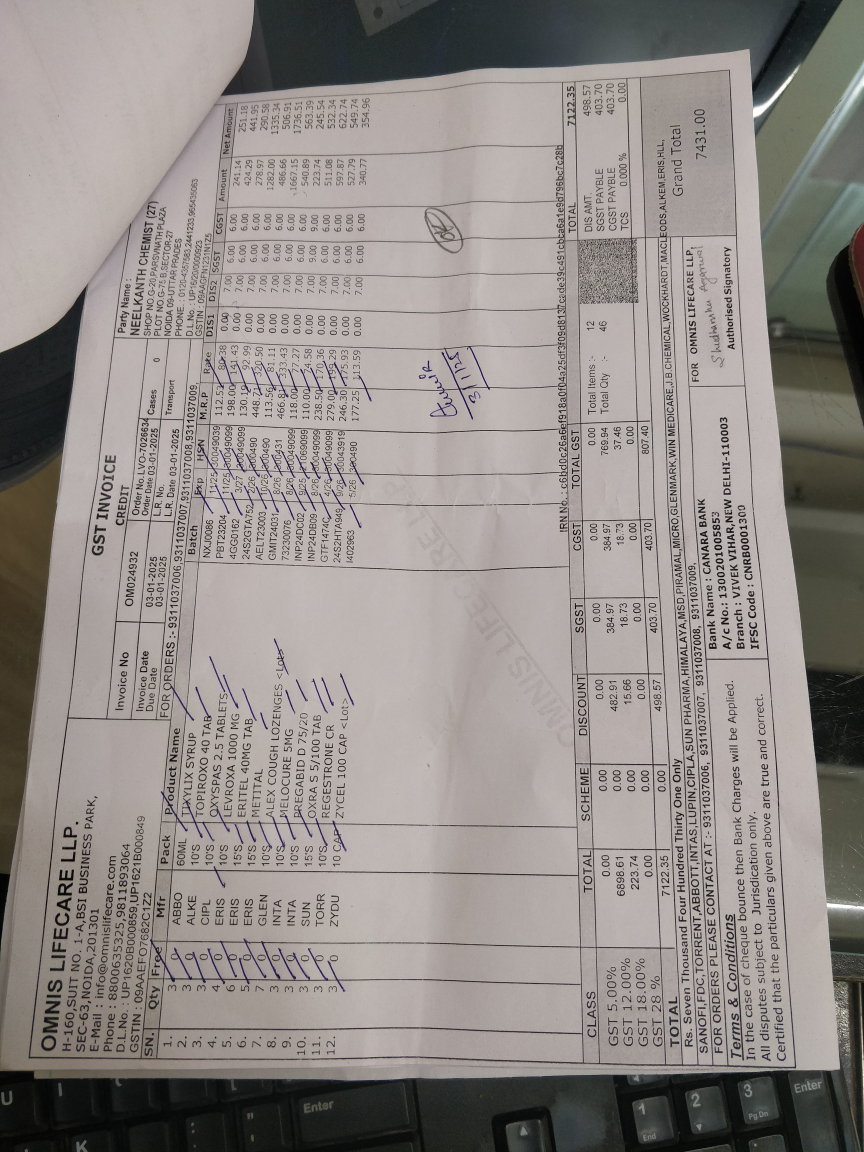 OMNIS LIFECARE LLP.
H-160,SUIT NO. 1-A,BSI BUSINESS PARK,
SEC-63,NOIDA,201301
E-Mail : info@omnislifecare.com
Phone : 8800635325,9811893064
D.L.No. : UP1620B000859,UP1621B000849
GSTIN : 09AAEFO7682C1Z2
GST INVOICE
CREDIT
Invoice No OM024932
Invoice Date 03-01-2025
Due Date 03-01-2025
Order No.
Order Date 03-01-2025 Cases 0
L.R. No.
L.R. Date 03-01-2025 Transport
FOR ORDERS :- 9311037006,9311037007,9311037008,9311037009,
Party Name :
NEELKANTH CHEMIST (27)
SHOP NO.G-20,PARSVNATH PLAZA
PLOT NO.G-75 B,SECTOR-27
NOIDA 09-UTTAR PRADES
SN. Qty Free Mfr Pack Product Name Batch Exp HSN M.R.P Rate DIS1 DIS2 SGST CGST Amount Net Amount
1. 3 0 ABBO 60ML TIXYLIX SYRUP NXJ0086 112.53 80.38 0.00 7.00 6.00 6.00 241.14 251.18
2. 3 0 ALKE 10'S TOPIROXO 40 TAB PBT23204 198.00 141.43 0.00 7.00 6.00 6.00 424.29 441.95
3. 3 0 CIPL 10'S OXYSPAS 2.5 TABLETS 4GG0162 92.99 0.00 7.00 6.00 6.00 278.97 290.58
4. 4 0 ERIS 10'S LEVROXA 1000 MG 24S2GTA752 0.00 7.00 6.00 6.00 1282.00 1335.34
5. 6 0 ERIS 15'S ERITEL 40MG TAB AELT23003 113.56 81.11 0.00 7.00 6.00 6.00 486.66 506.91
6. 5 0 ERIS 15'S METITAL GMIT24031 333.43 0.00 7.00 6.00 6.00 1667.15 1736.51
7. 7 0 GLEN 10'S ALEX COUGH LOZENGES <Lot> 73230076 118.00 77.27 0.00 7.00 6.00 6.00 540.89 563.39
8. 3 0 INTA 10'S MELOCURE 5MG INP24DC02 110.00 74.58 0.00 7.00 9.00 9.00 223.74 245.54
9. 3 0 INTA 10'S PREGABID D 75/20 INP24DB09 238.50 170.36 0.00 7.00 6.00 6.00 511.08 532.34
10. 3 0 SUN 15'S OXRA S 5/100 TAB GTF1474C 279.00 199.29 0.00 7.00 6.00 6.00 597.87 622.74
11. 3 0 TORR 10'S REGESTRONE CR 24S2HTA949 246.30 175.93 0.00 7.00 6.00 6.00 527.79 549.74
12. 3 0 ZYDU 10 CAP ZYCEL 100 CAP <Lot> I402963 5/26 177.25 113.59 0.00 7.00 6.00 6.00 340.77 354.96
OMNIS LIFECARE LLP
3/1/25
CLASS TOTAL SCHEME DISCOUNT SGST CGST TOTAL GST
GST 5.00% 0.00 0.00 0.00 0.00 0.00 0.00
GST 12.00% 6898.61 0.00 482.91 384.97 384.97 769.94
GST 18.00% 223.74 0.00 15.66 18.73 18.73 37.46
GST 28 % 0.00 0.00 0.00 0.00 0.00 0.00
TOTAL 7122.35 0.00 498.57 403.70 403.70 807.40
Total Items :- 12
Total Qty :- 46
TOTAL 7122.35
DIS AMT. 498.57
SGST PAYBLE 403.70
CGST PAYBLE 403.70
TCS 0.000 % 0.00
Rs. Seven Thousand Four Hundred Thirty One Only
Grand Total
7431.00
SANOFI,FDC,TORRENT,ABBOTT,INTAS,LUPIN,CIPLA,SUN PHARMA,HIMALAYA,MSD,PIRAMAL,MICRO,GLENMARK,WIN MEDICARE,J.B.CHEMICAL,WOCKHARDT,MACLEODS,ALKEM,ERIS,HLL,
FOR ORDERS PLEASE CONTACT AT :- 9311037006, 9311037007, 9311037008, 9311037009,
Terms & Conditions
In the case of cheque bounce then Bank Charges will be Applied.
All disputes subject to Jurisdication only.
Certified that the particulars given above are true and correct.
Bank Name : CANARA BANK
A/c No.: 1300201005853
Branch : VIVEK VIHAR,NEW DELHI-110003
IFSC Code : CNRB0001300
FOR OMNIS LIFECARE LLP.
Shudhanshu Agarwal
Authorised Signatory